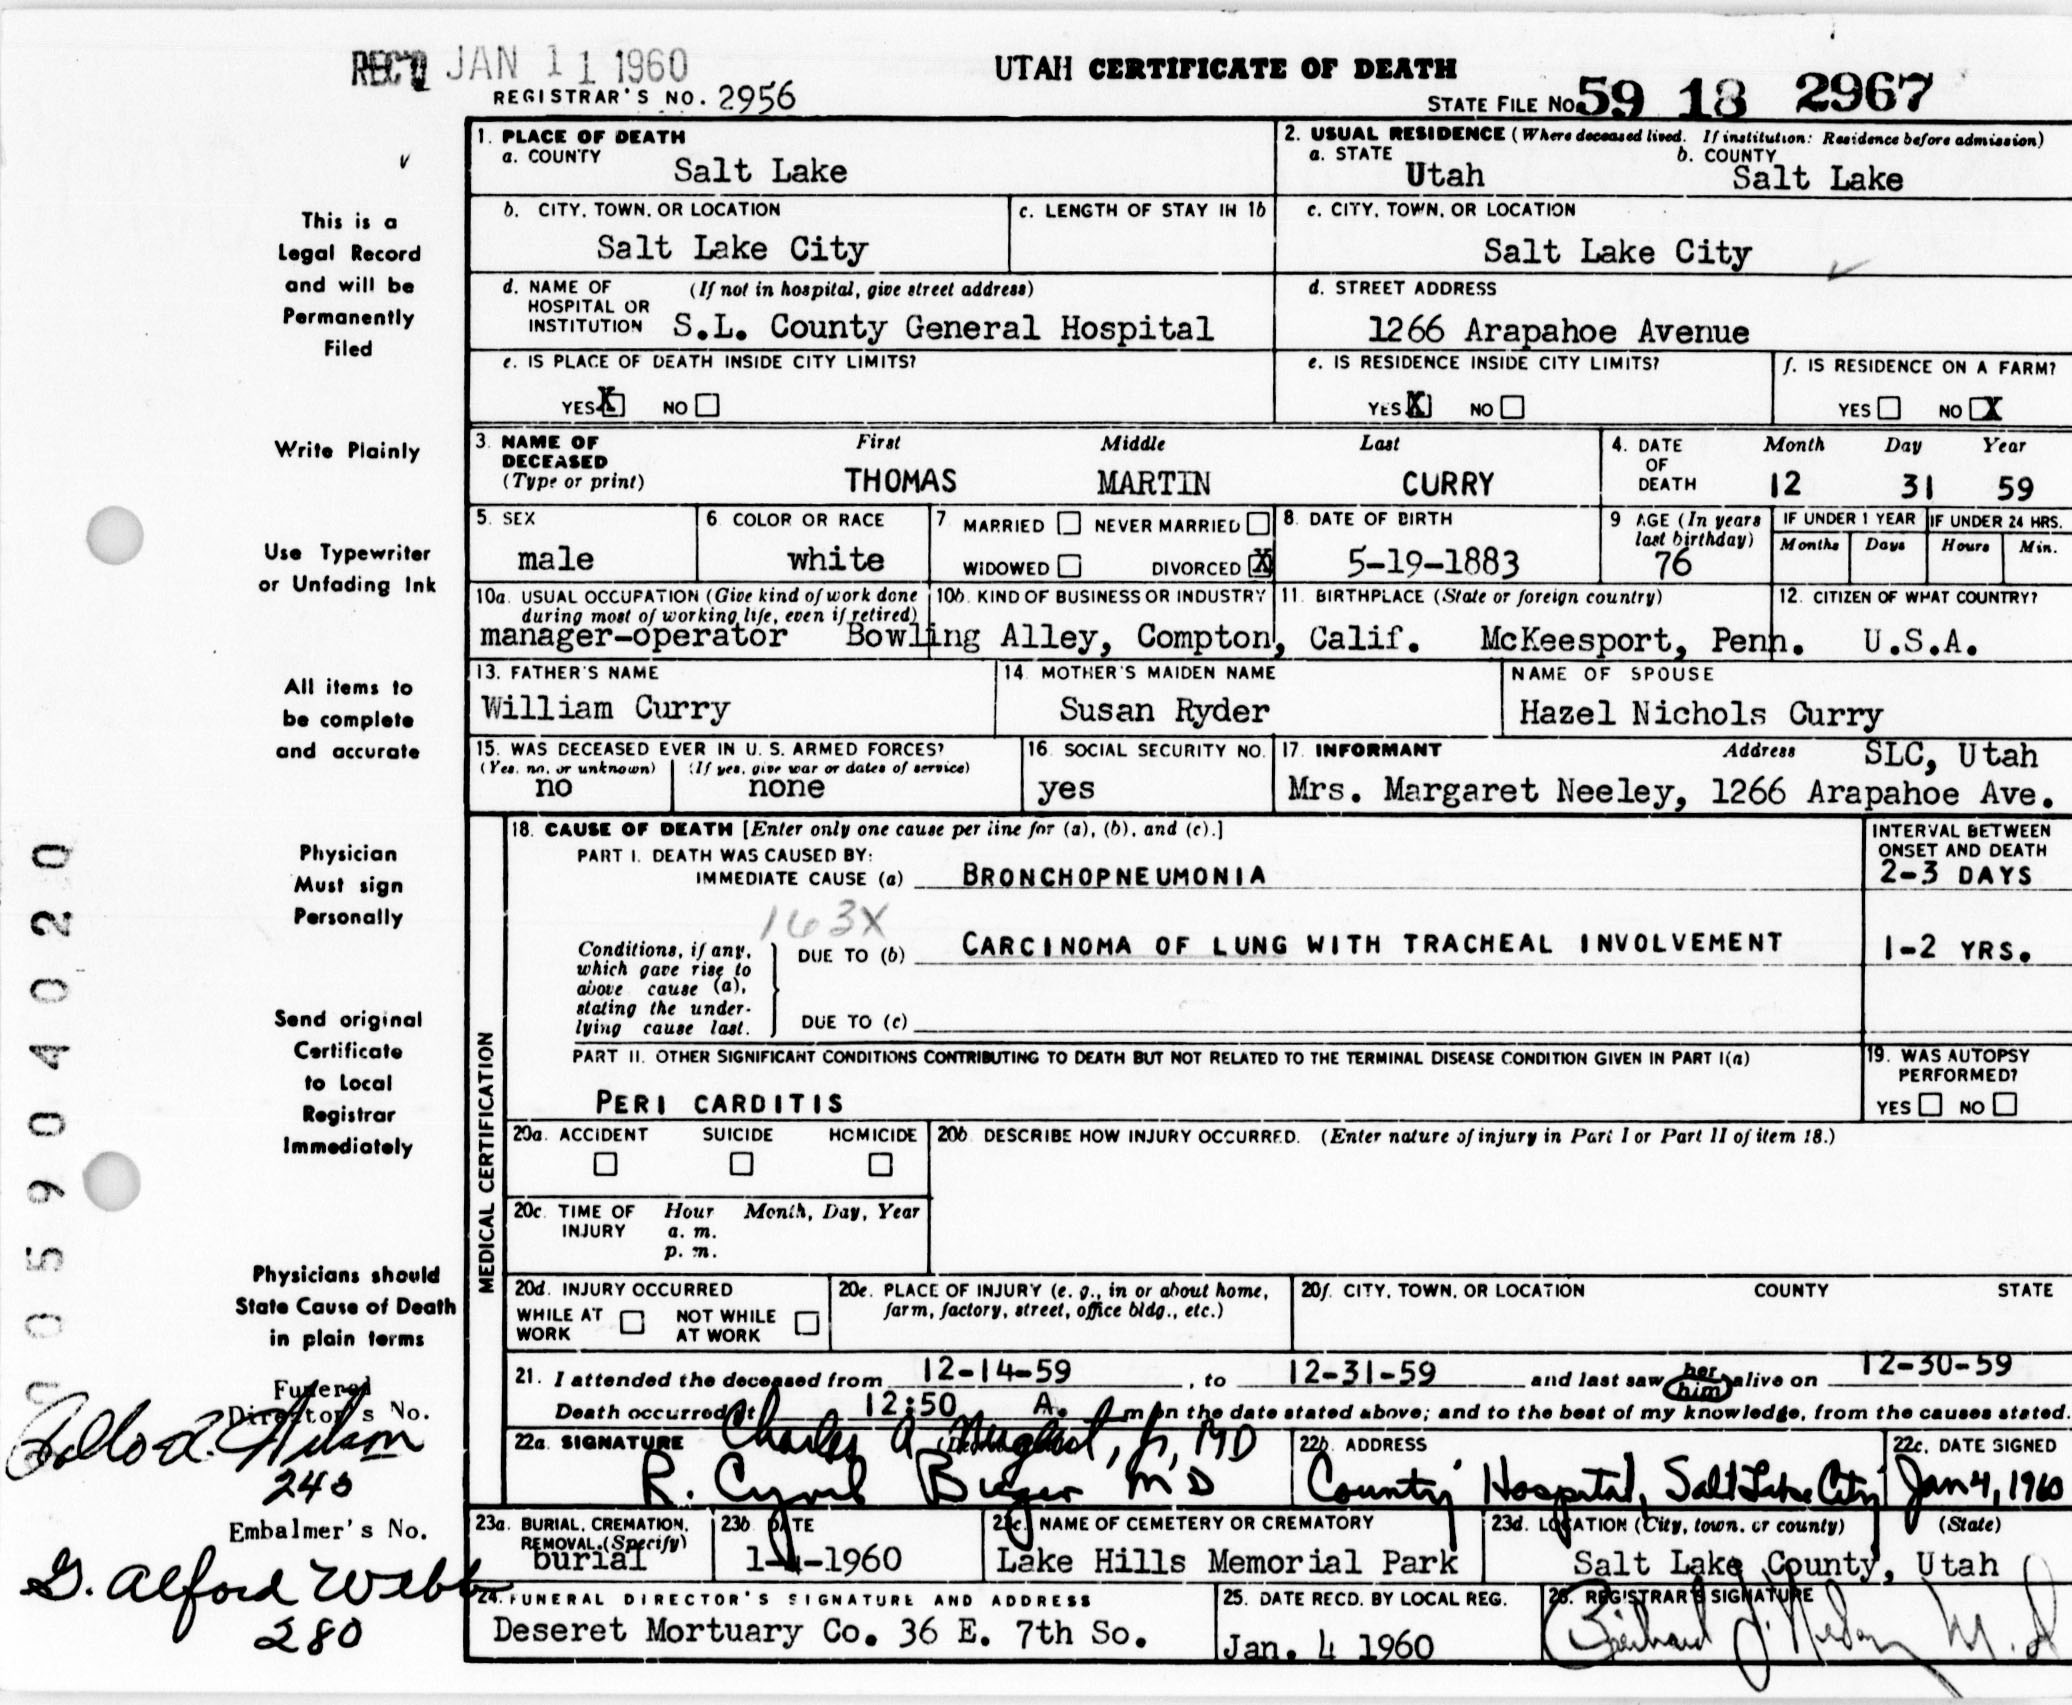 REC'D JAN 11 1960
UTAH CERTIFICATE OF DEATH
REGISTRAR'S NO. 2956
STATE FILE NO. 59 18 2967
This is a
Legal Record
and will be
Permanently
Filed
Write Plainly
Use Typewriter
or Unfading Ink
All items to
be complete
and accurate
Physician
Must sign
Personally
Send original
Certificate
to Local
Registrar
Immediately
Physicians should
State Cause of Death
in plain terms
Funeral
Director's No.
Wilson
240
Embalmer's No.
G. Alford Webb
280
0059040 20
1. PLACE OF DEATH
a. COUNTY
Salt Lake
2. USUAL RESIDENCE (Where deceased lived. If institution: Residence before admission)
a. STATE b. COUNTY
Utah Salt Lake
b. CITY, TOWN, OR LOCATION
Salt Lake City
c. LENGTH OF STAY IN 1b
c. CITY, TOWN, OR LOCATION
Salt Lake City
d. NAME OF (If not in hospital, give street address)
HOSPITAL OR
INSTITUTION S.L. County General Hospital
d. STREET ADDRESS
1266 Arapahoe Avenue
e. IS PLACE OF DEATH INSIDE CITY LIMITS?
YES X NO
e. IS RESIDENCE INSIDE CITY LIMITS?
YES X NO
f. IS RESIDENCE ON A FARM?
YES NO X
3. NAME OF First Middle Last
DECEASED
(Type or print) THOMAS MARTIN CURRY
4. DATE Month Day Year
OF
DEATH 12 31 59
5. SEX
male
6. COLOR OR RACE
white
7. MARRIED NEVER MARRIED
WIDOWED DIVORCED X
8. DATE OF BIRTH
5-19-1883
9 AGE (In years
last birthday)
76
IF UNDER 1 YEAR IF UNDER 24 HRS.
Months Days Hours Min.
10a. USUAL OCCUPATION (Give kind of work done
during most of working life, even if retired)
10b. KIND OF BUSINESS OR INDUSTRY
11. BIRTHPLACE (State or foreign country)
12. CITIZEN OF WHAT COUNTRY?
manager-operator Bowling Alley, Compton, Calif. McKeesport, Penn. U.S.A.
13. FATHER'S NAME
William Curry
14. MOTHER'S MAIDEN NAME
Susan Ryder
NAME OF SPOUSE
Hazel Nichols Curry
15. WAS DECEASED EVER IN U. S. ARMED FORCES?
(Yes, no, or unknown) (If yes, give war or dates of service)
no none
16. SOCIAL SECURITY NO.
yes
17. INFORMANT Address SLC, Utah
Mrs. Margaret Neeley, 1266 Arapahoe Ave.
MEDICAL CERTIFICATION
18. CAUSE OF DEATH [Enter only one cause per line for (a), (b), and (c).]
PART I. DEATH WAS CAUSED BY:
IMMEDIATE CAUSE (a) BRONCHOPNEUMONIA
INTERVAL BETWEEN
ONSET AND DEATH
2-3 DAYS
163X
Conditions, if any,
which gave rise to
above cause (a),
stating the under-
lying cause last.
DUE TO (b) CARCINOMA OF LUNG WITH TRACHEAL INVOLVEMENT
1-2 YRS.
DUE TO (c)
PART II. OTHER SIGNIFICANT CONDITIONS CONTRIBUTING TO DEATH BUT NOT RELATED TO THE TERMINAL DISEASE CONDITION GIVEN IN PART I(a)
PERI CARDITIS
19. WAS AUTOPSY
PERFORMED?
YES NO
20a. ACCIDENT SUICIDE HOMICIDE
20b DESCRIBE HOW INJURY OCCURRED. (Enter nature of injury in Part I or Part II of item 18.)
20c. TIME OF Hour Month, Day, Year
INJURY a. m.
p. m.
20d. INJURY OCCURRED
WHILE AT NOT WHILE
WORK AT WORK
20e. PLACE OF INJURY (e. g., in or about home,
farm, factory, street, office bldg., etc.)
20f. CITY, TOWN, OR LOCATION COUNTY STATE
21. I attended the deceased from 12-14-59, to 12-31-59 and last saw her him alive on 12-30-59
Death occurred at 12:50 A. m on the date stated above; and to the best of my knowledge, from the causes stated.
22a. SIGNATURE Charles A. Jr, MD
R. Cyril MD
22b. ADDRESS
County Hospital, Salt Lake City
22c. DATE SIGNED
Jan 4, 1960
23a. BURIAL, CREMATION,
REMOVAL (Specify)
burial
23b DATE
1-4-1960
23c. NAME OF CEMETERY OR CREMATORY
Lake Hills Memorial Park
23d. LOCATION (City, town, or county) (State)
Salt Lake County, Utah
24. FUNERAL DIRECTOR'S SIGNATURE AND ADDRESS
Deseret Mortuary Co. 36 E. 7th So.
25. DATE RECD. BY LOCAL REG.
Jan. 4 1960
26. REGISTRAR'S SIGNATURE
M.D